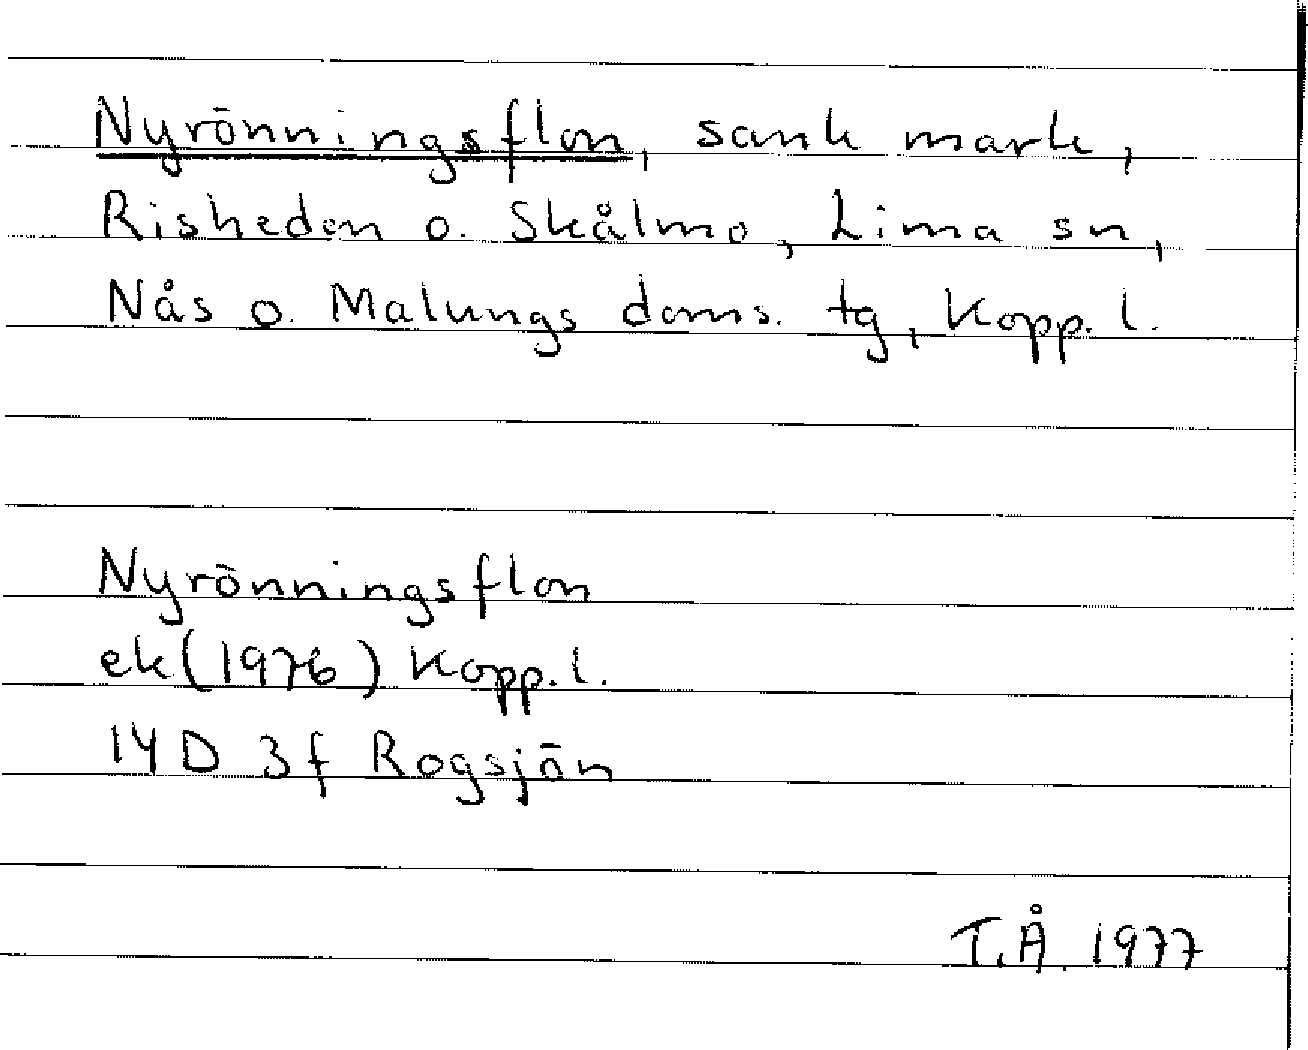 Nyrönningsflon, sank mark,
Risheden o. Skålmo, Lima sn,
Nås o. Malungs doms. tg, Kopp. l.
Nyrönningsflon
ek (1976) Kopp. l.
14 D 3f Rogsjön
T.Å. 1977